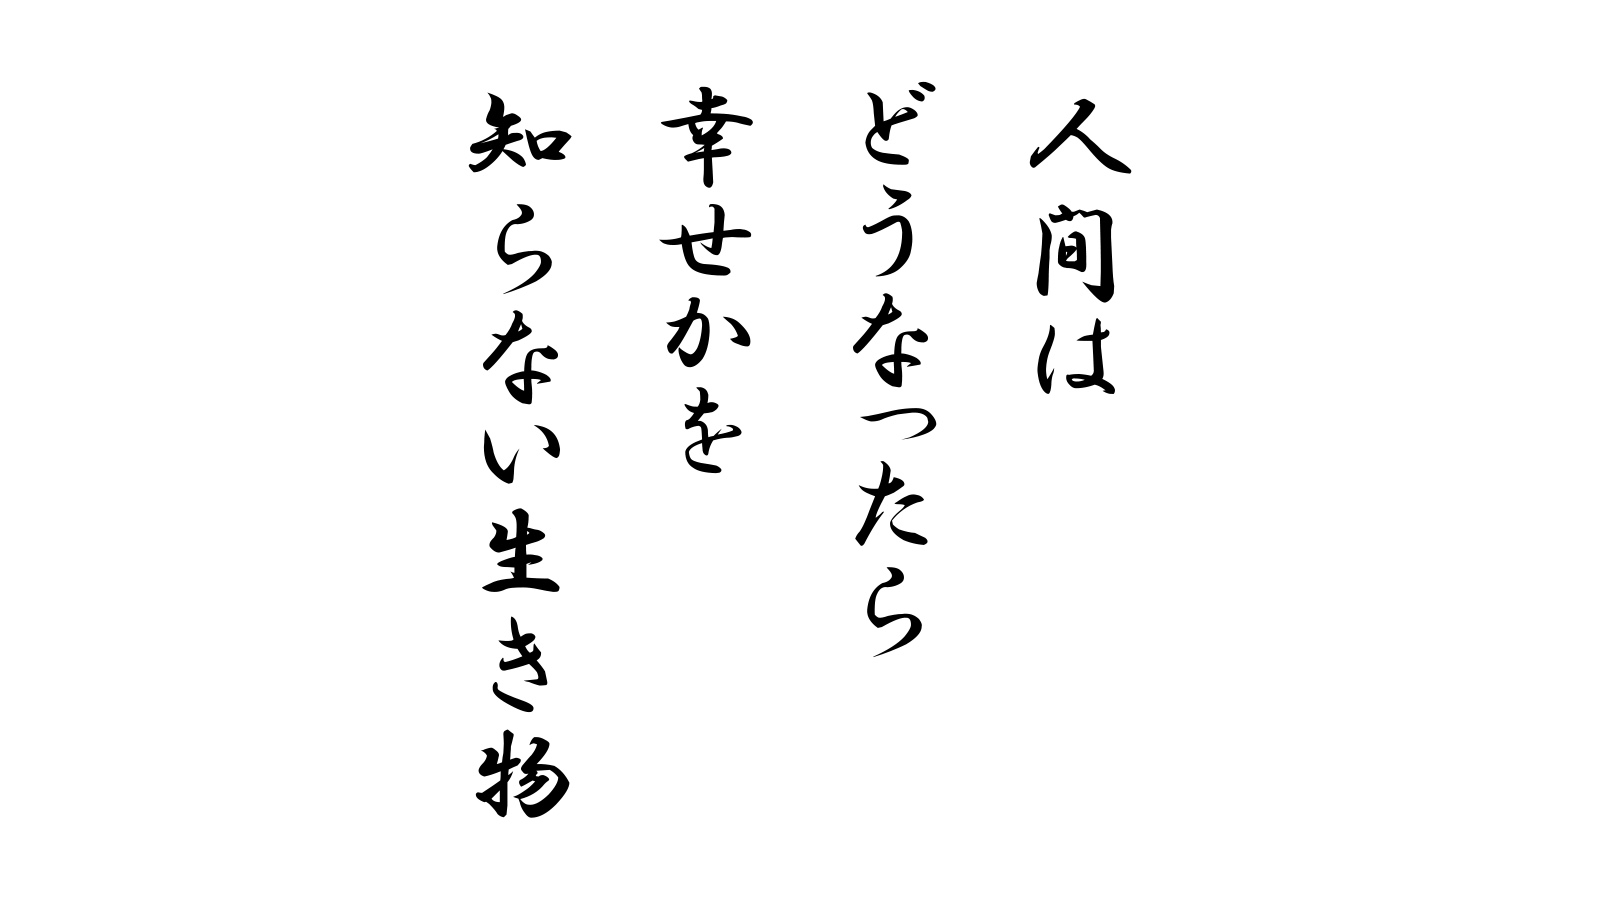 人間は
どうなったら
幸せかを
知らない生き物